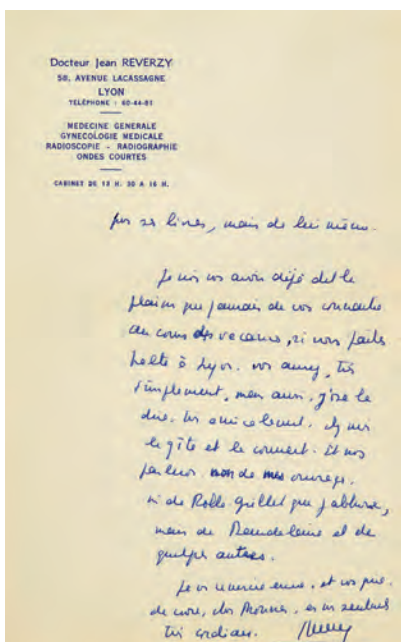 Docteur Jean REVERZY
58, AVENUE LACASSAGNE
LYON
TÉLÉPHONE : 60-44-81
MEDECINE GENERALE
GYNECOLOGIE MEDICALE
RADIOSCOPIE - RADIOGRAPHIE
ONDES COURTES
CABINET DE 13 H. 30 A 16 H.
livres, mais de lui même.
Je crois vous avoir déjà dit le
plaisir que j'aurais de vous connaître
au cours des vacances, si vous faites
halte à Lyon. vous aurez, très
simplement, mais aussi, j'ose le
dire, très amicalement, chez moi
le gîte et le couvert. Et nous
parlerons non de mes ouvrages,
ni de Robbe Grillet que j'abhorre,
mais de Baudelaire et de
quelques autres.
Je vous remercie encore, et vous prie
de croire, cher Monsieur, à mes sentiments
très cordiaux.